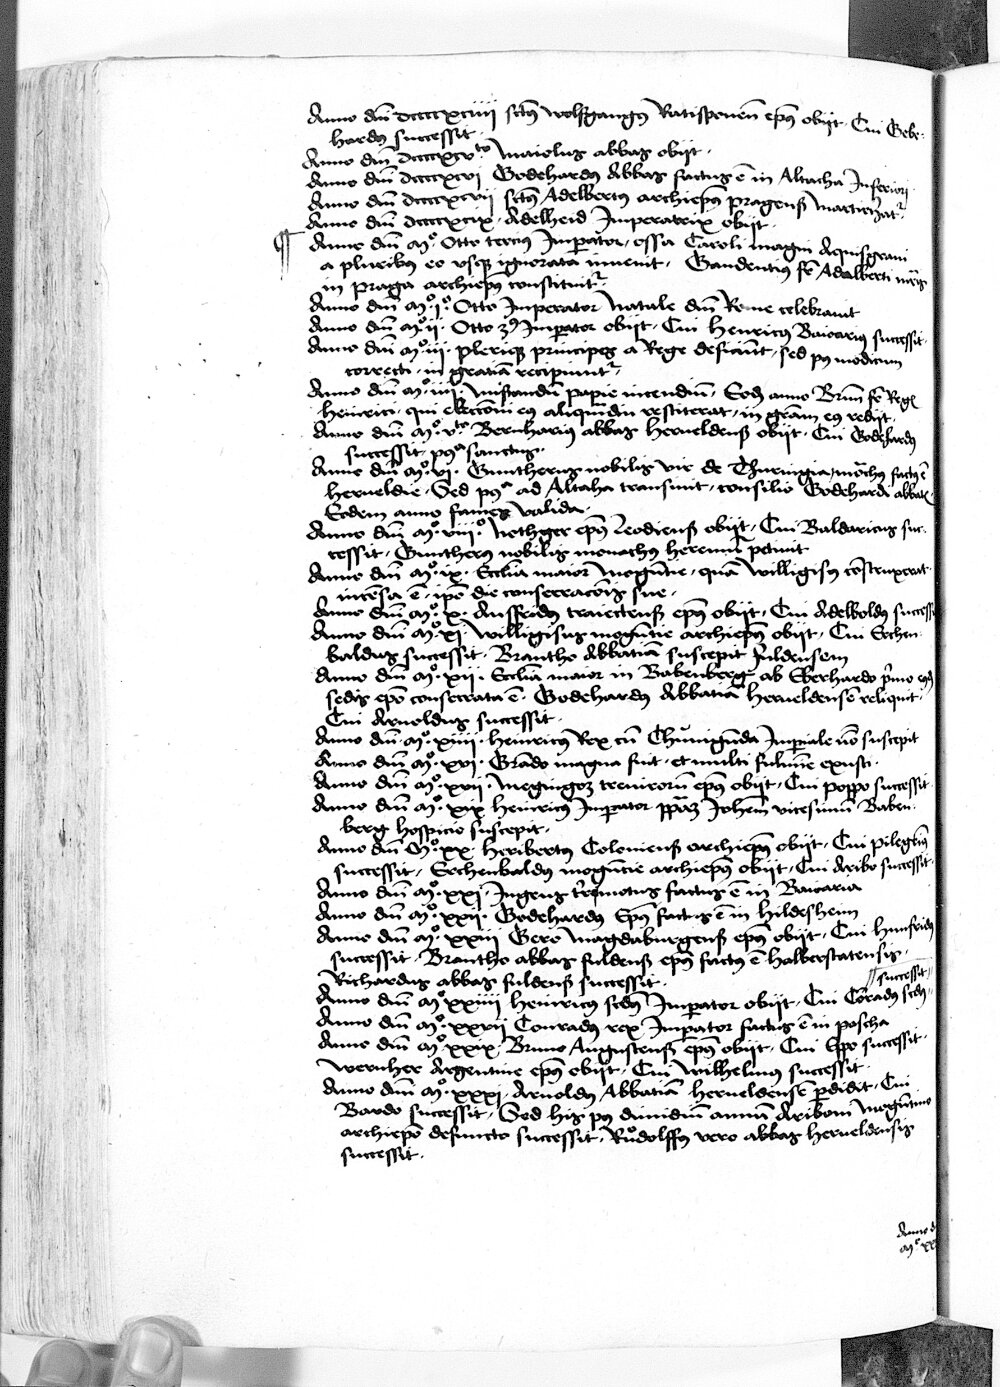 Anno dnī dccccxciiii sctūs wolfgangus Ratisponenn̄ epūs obijt · Cui Gebe-
hardus successit ·
Anno dnī dccccxcvto maiolus abbas obijt ·
Anno dnī dccccxcvi Godehardus Abbas factus ē in Altacha Inferiori
Anno dnī dccccxcvii sctūs Adelbertus archiepūs pragenß martirizatr ·
Anno dnī dccccxcix · Adelheid Imperatrix obijt ·
¶ Anno dnī Mo Otto tercius Imperator / ossa Caroli magni Aquisgrani
a pluribus eo usque ignorata invenit · Gaudentius fr̄ Adalberti mr̄is
in praga archiepūs constituitr ·
Anno dnī Mo io Otto Imperator Natale dnī Rome celebravit
Anno dnī Mo ii · Otto 3us Imperator obijt · Cui Henricus Baioarius successit ·
Anno dnī Mo iii · plerique principes a Rege deficiunt · sed post modicum
correcti · in gratiā recipiuntr ·
Anno dnī Mo iiii · papie incendiū · Eodē anno Brun fr̄ Regis
Heinrici · qui electioni eius aliquandiu restiterat · in grām eius redijt ·
Anno dnī Mo vto Bernharius abbas Herveldenß obijt · Cui Godehardus
successit postea sanctus ·
Anno dnī Mo vi · Guntherus nobilis vir de Thuringia / mōchus factus ē
Herveldie · Sed postea ad Altaha transivit · consilio Godehardi abbatis
Eodem anno fames valida ·
Anno dnī Mo viiio Nothger epūs Leodienß obijt · Cui Baldaricus suc-
cessit · Guntherus nobilis monachus heremū petivit
Anno dnī Mo ix · Ecclīa maior Mogūtie · quā Willigisus cōstruxerat
incēsa ē · ipō die consecracōis sue ·
Anno dnī Mo x · Ansfridus traiectenß epūs obijt · Cui Adelboldus successit
Anno dnī Mo xi · Willigisus mogūtie archiepūs obijt · Cui Erchen-
baldus successit · Brantho Abbatiā suscepit fuldensem
Anno dnī Mo xii · Ecclīa maior in Babenberg ab Eberhardo prīmo eiusdem
sedis epō consecrata ē · Godehardus Abbatiā Herveldensē reliquit ·
Cui Arnoldus successit ·
Anno dnī Mo xiiii · Heinricus Rex cū Chunigūda Imperiale nō suscepit
Anno dnī Mo xvi · Grando magna fuit · et multi fulmīe exusti ·
Anno dnī Mo xvii · Megingoz trevirorū epūs obijt · Cui poppo successit
Anno dnī Mo xix Heinricus Imperator ppām Johem̄ vicesimū Baben-
berg hospicio suscepit ·
Anno dnī Mo xx · Heribertus Colonienß archiepūs obijt · Cui Pilegrīus
successit · Erchenbaldus mogūtie archiepūs obijt · Cui Aribo successit ·
Anno dnī Mo xxi · Ingens tr̄emotus factus ē in Baioaria
Anno dnī Mo xxii · Godehardus Epūs factus ē in Hildesheim
Anno dnī Mo xxiii Gero Magdaburgenß epūs obijt · Cui Hunfridus
successit · Brantho abbas fuldenß epūs factus ē Halberstatensis ·
Richardus abbas fuldenß successit ·
// successit //
Anno dnī Mo xxiiii Heinricus scdūs Imperator obijt · Cui Cōradus scdūs //
Anno dnī Mo xxvii Conradus rex Imperator factus ē in pascha
Anno dnī Mo xxix · Bruno Augustenß epūs obijt · Cui Eppo successit ·
Wernher Argentine epūs obijt · Cui Wilhelmus successit
Anno dnī Mo xxxi · Arnoldus Abbatiā Herveldensē perdidit · Cui
Bardo successit · Sed his post dimidiū annū Aribom mogūtino
archiepō defuncto successit · Rudolffus vero abbas Herveldensis
successit ·
Anno d
Mo xx